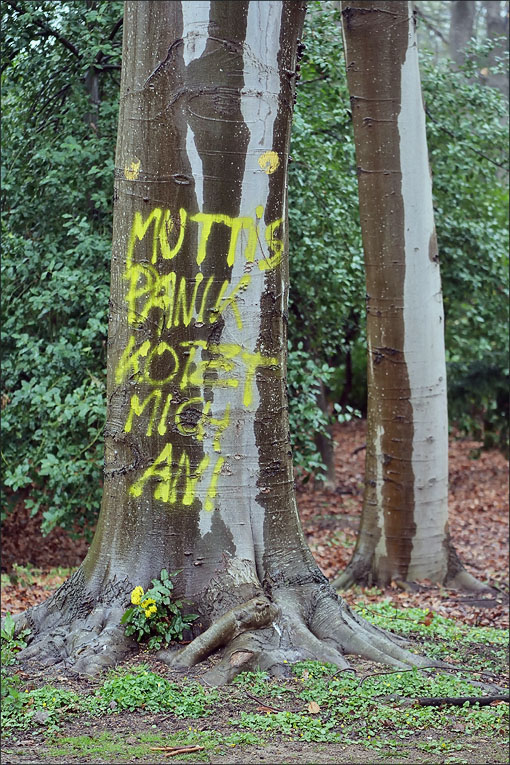 MUTTis
PANIK
KOTET
MICH
AN!